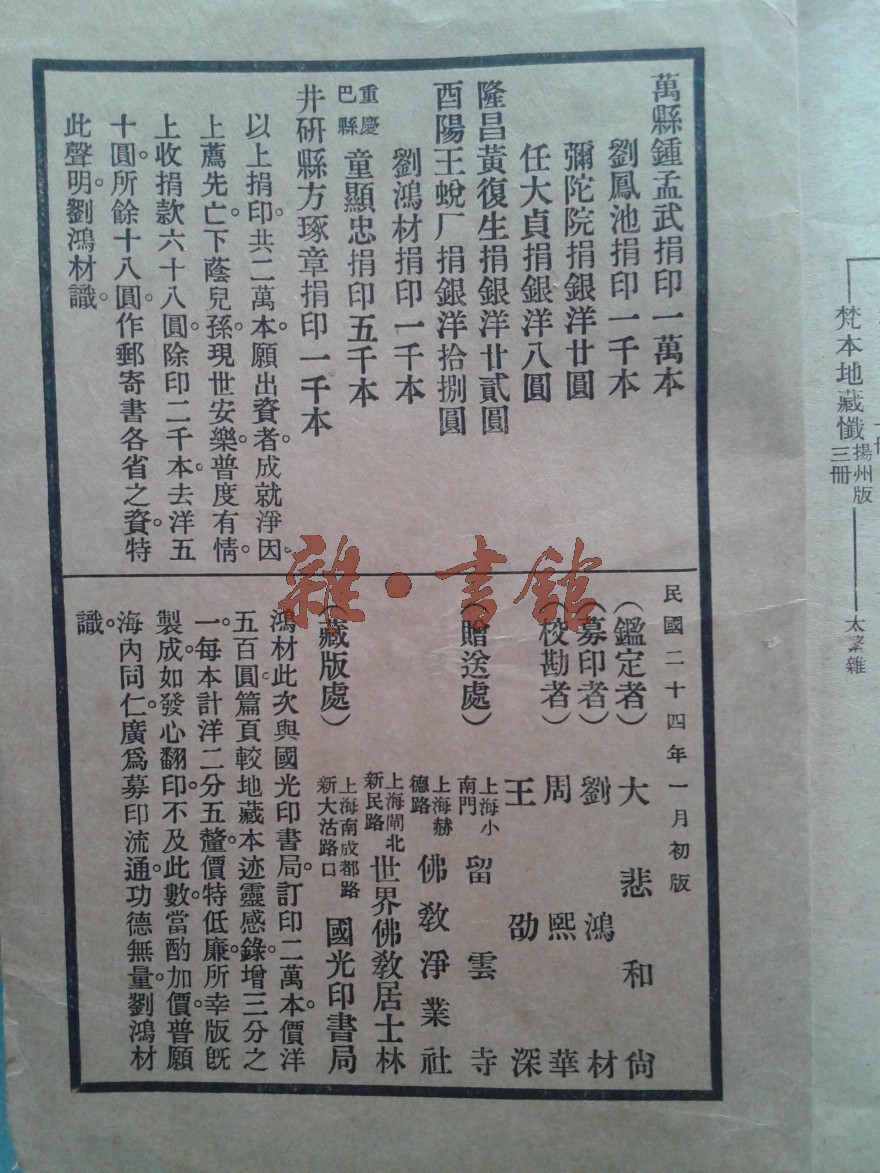 梵本地藏懺 揚州版三冊
太繁雜
萬縣鍾孟武捐印一萬本
劉鳳池捐印一千本
彌陀院捐銀洋廿圓
任大貞捐銀洋八圓
隆昌黃復生捐銀洋廿貳圓
酉陽王蛻厂捐銀洋拾捌圓
劉鴻材捐印一千本
重慶巴縣童顯忠捐印五千本
井研縣方琢章捐印一千本
以上捐印。共二萬本。願出資者。成就淨因。
上薦先亡。下蔭兒孫。現世安樂。普度有情。
上收捐款六十八圓。除印二千本。去洋五
十圓。所餘十八圓。作郵寄書各省之資。特
此聲明。劉鴻材識。
民國二十四年一月初版
（鑑定者）大悲和尙
（募印者）劉鴻材
（校勘者）周熙華
王劭深
（贈送處）上海小南門留雲寺
上海赫德路佛教淨業社
上海閘北新民路世界佛教居士林
（藏版處）上海南成都路新大沽路口國光印書局
鴻材此次與國光印書局。訂印二萬本。價洋
五百圓。篇頁較地藏本迹靈感錄。增三分之
一。每本計洋二分五釐。價特低廉。所幸版旣
製成。如發心翻印。不及此數。當酌加價。普願
海內同仁。廣爲募印流通。功德無量。劉鴻材
識。
雜·書館